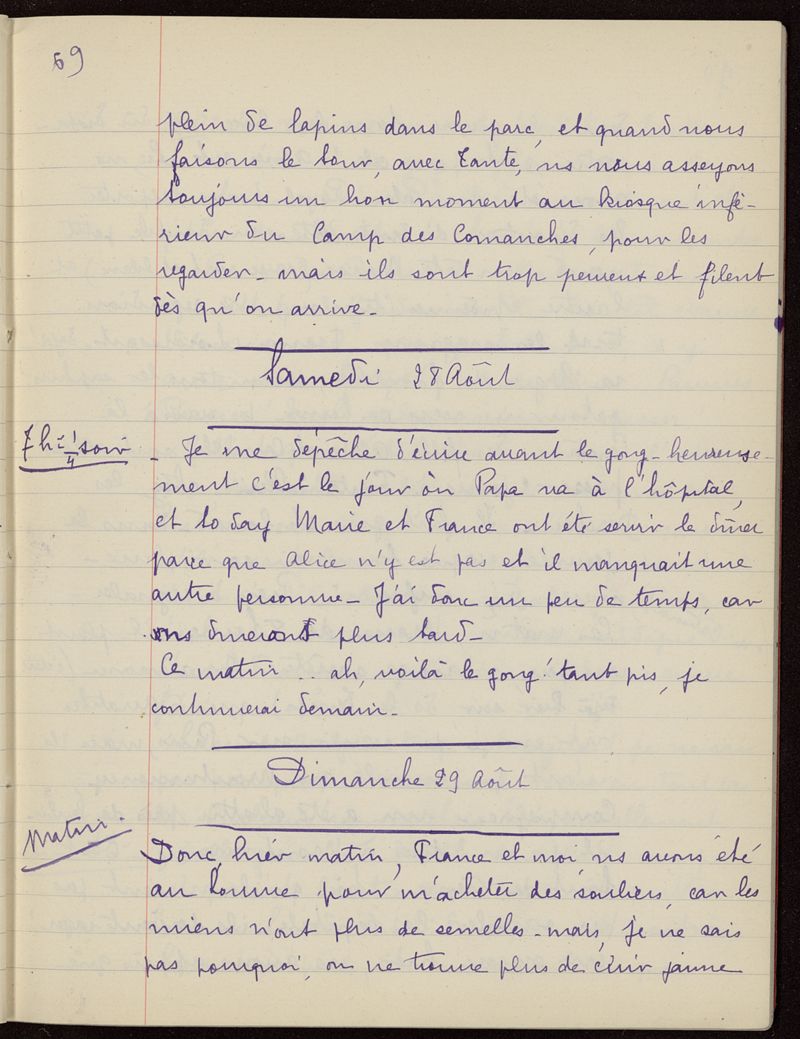 69
plein de lapins dans le parc, et quand nous
faisons le tour, avec Tante, ns nous asseyons
toujours un bon moment au kiosque infé-
rieur du Camp des Comanches, pour les
regarder - mais ils sont trop peureux et filent
dès qu'on arrive -
Samedi 28 Août
7 h 1/4 soir
- Je me dépêche d'écrire avant le gong - heureuse-
ment c'est le jour où Papa va à l'hôpital,
et to day Marie et France ont été servir le dîner
parce que Alice n'y est pas et il manquait une
autre personne - J'ai donc un peu de temps, car
ns dinerons plus tard -
Ce matin .. ah, voilà le gong! tant pis, je
continuerai demain -
Dimanche 29 Août
Matin -
Donc, hier matin, France et moi, ns avons été
au Homme pour m'acheter des souliers, car les
miens n'ont plus de semelles - mais, je ne sais
pas pourquoi, on ne trouve plus de cuir jaune